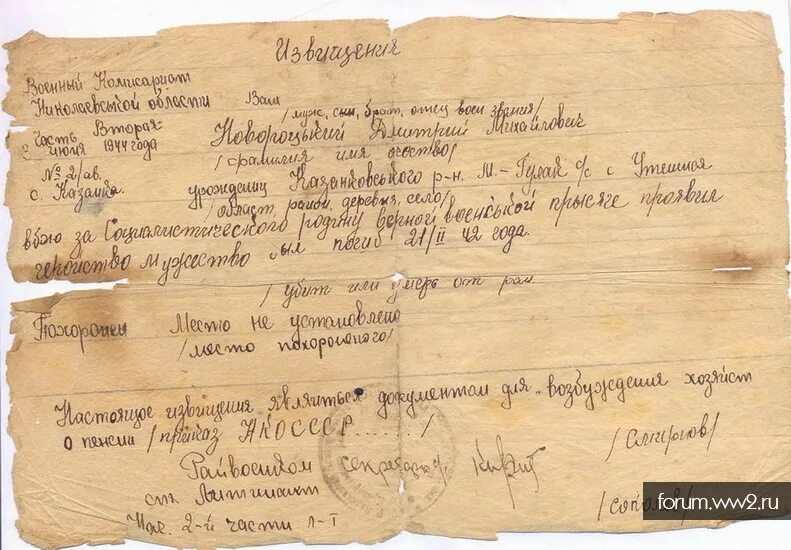 Извищения
Военный Комисариат
Николаевськой области Ваш
/муж, сын, брат, отец воен звания/
Часть Вторая
2 июня 1944 года
Новороцький Дмитрий Михайлович
/фамилия имя очество/
№ 2/ав.
с. Казанка.
урожденец Казанковського р-н. М-Гулак с/с с Утешноя
/область, район, деревня, село/
вбою за Социалистического родину верной военськой прысяге проявил
геройство мужество был погиб 21/II 42 года.
/убит или умерь от ран.
Похоронен Место не установлено
/место похороненого/
Настоящое извищения являиться документом для возбуждения хозяйст
о пенсии /приказ НКОСССР....../
Райвоенком секретарь
/Смирнов/
ст Литинант
Нач. 2-й части
forum.ww2.ru